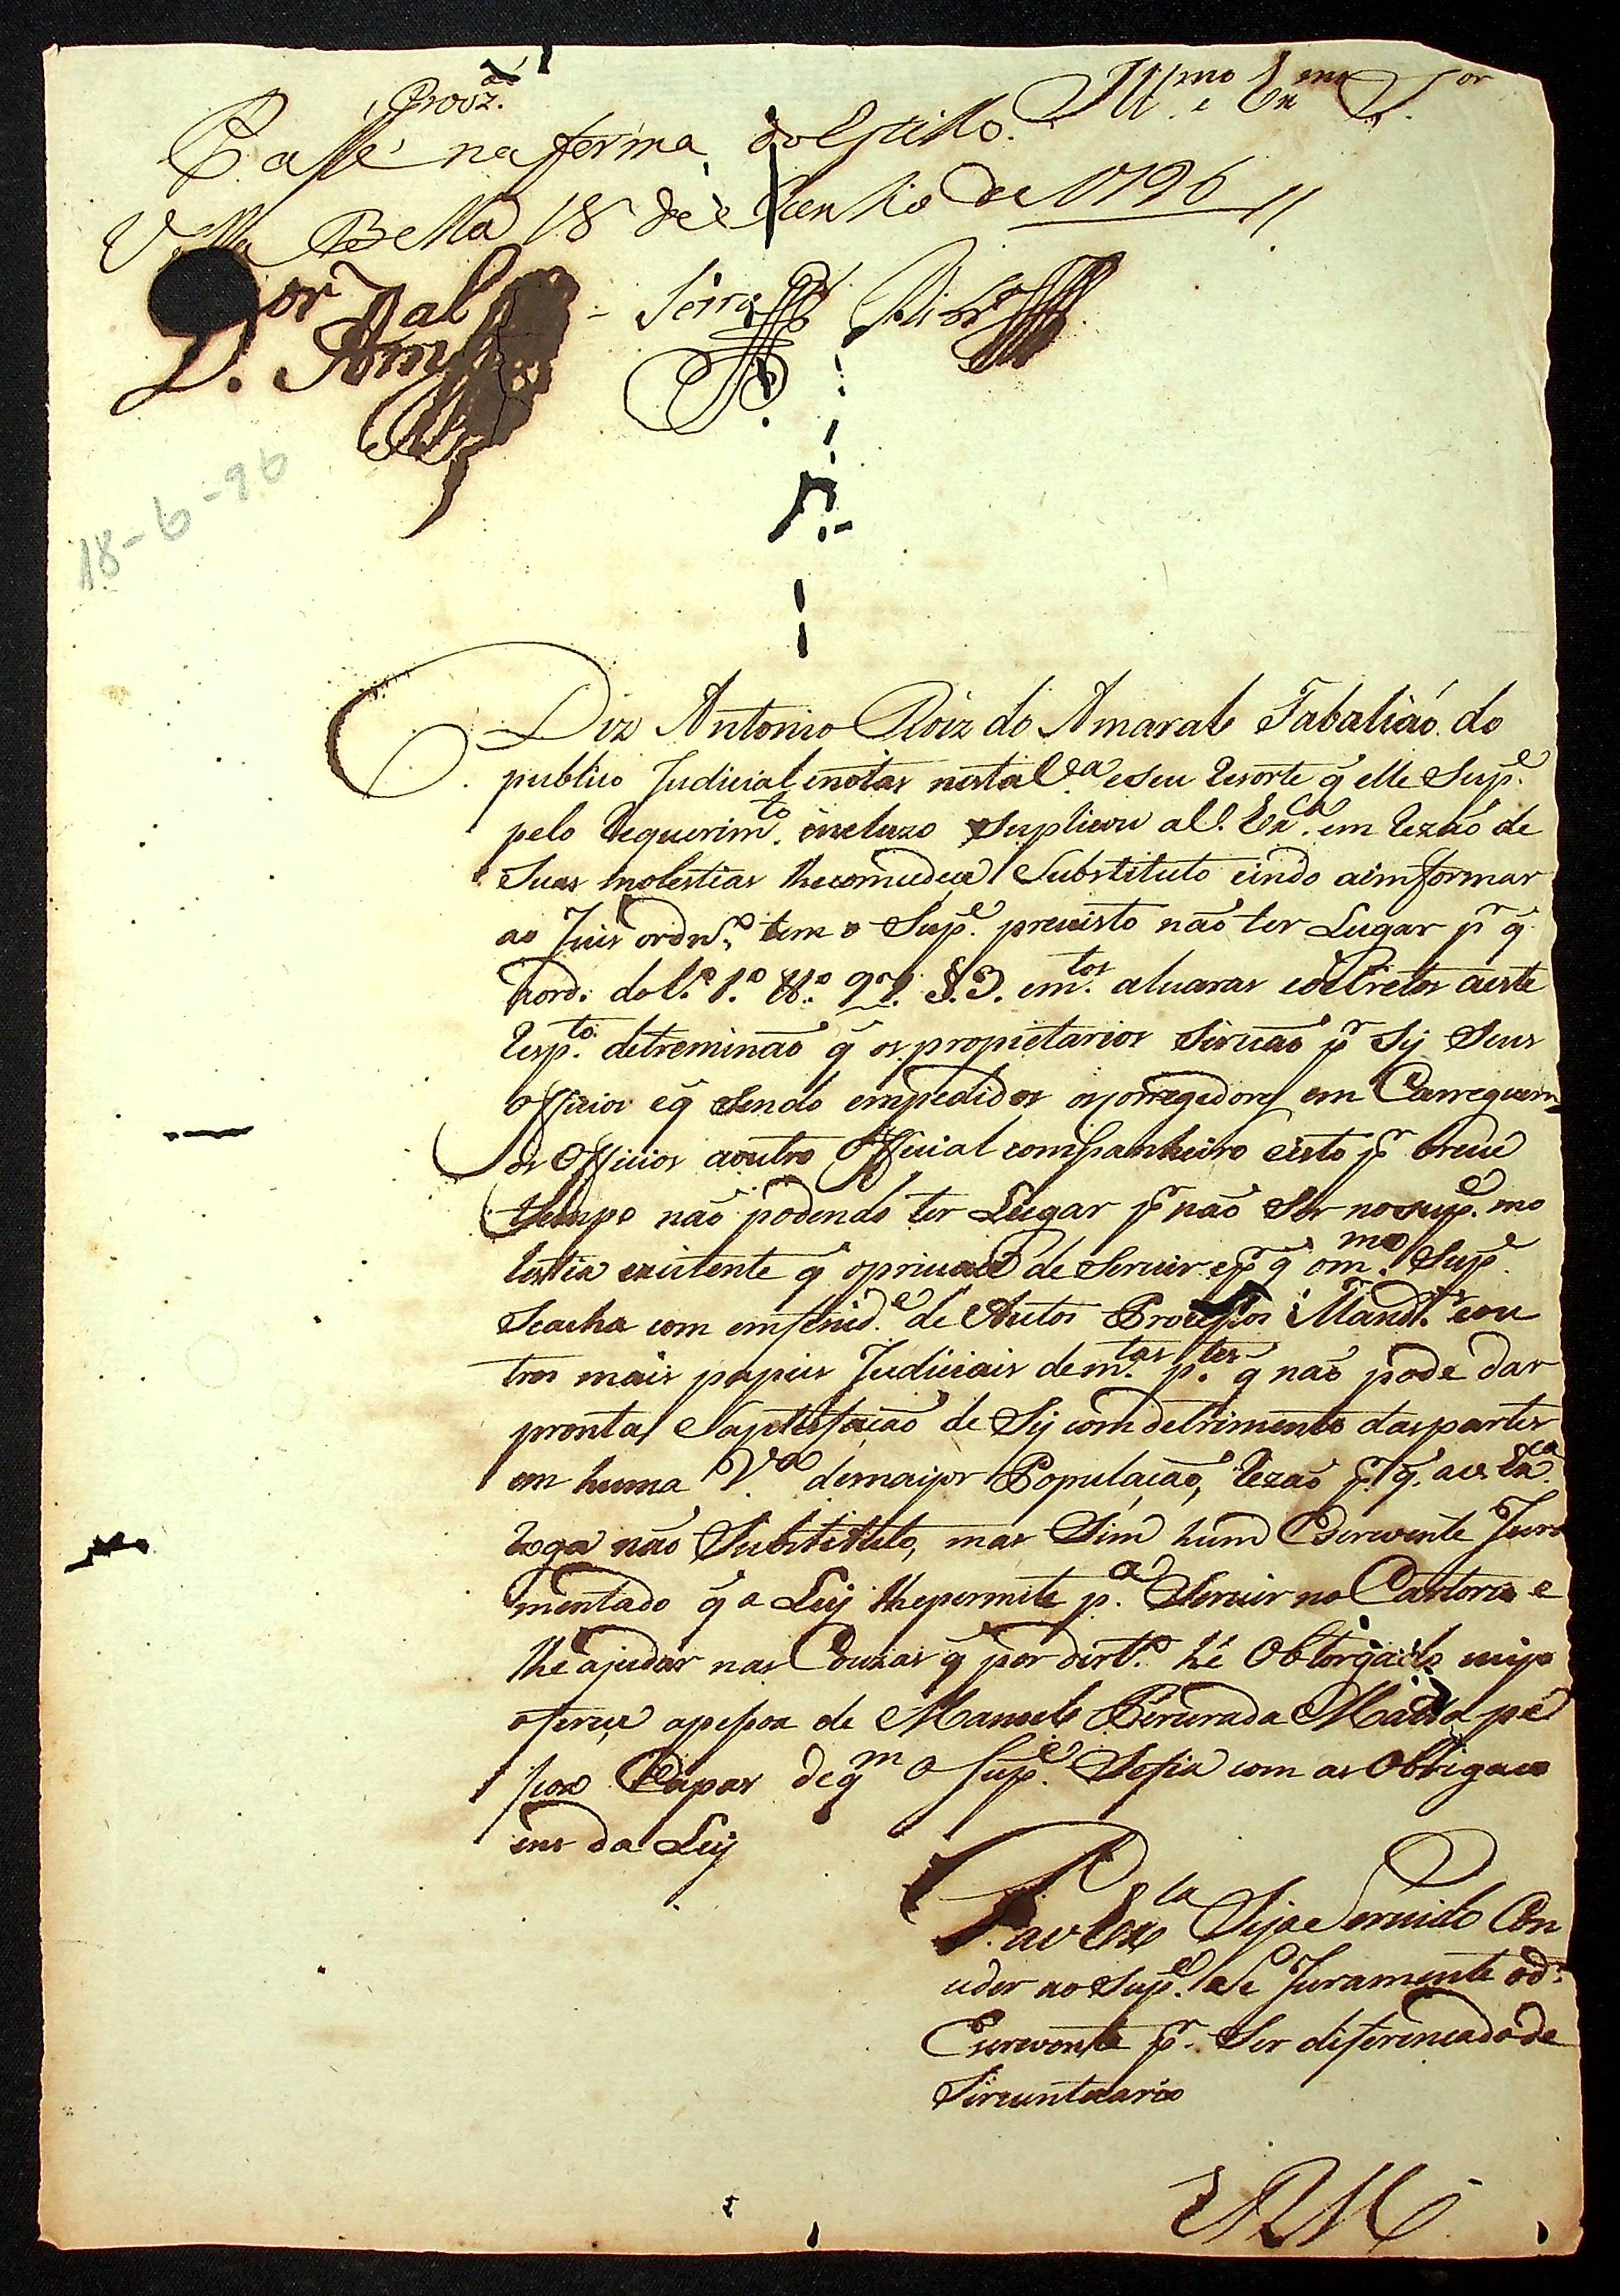 Ill.mo e Ex.mo S.or
Provz.ão
Passe na forma do estillo.
Villa Bella 18 de Junho de 1796
D.or Aml
Serra
18-6-96
Diz Antonio Roiz do Amaral Tabaliaõ do
publico Judicial e notas nesta V.a e seu Resorte q̃ elle Sup.e
pelo Requerim.to incluzo suplicou a V. Ex.ca em rezaõ de
Suas molestias lhe comsedece Substituto e indo a imformar
ao Juis ordn.o tem o Sup.e previsto naõ ter Lugar p.r q̃
hord. do L.o 1.o tt.o 97. §.3. e m.tos alvaras e decretos a este
Resp.to detreminaõ q̃ os propietarios Sirvaõ p.r Sy Seus
officios e q̃ Sendo empedidos os corregedores em Carreguem
os Officios a outro Official companheiro e isto p.r breve
tempo naõ podendo ter Lugar p.r naõ Ser no sup.e mo
lestia existente q̃ o prive de Servir e p.r q̃ o m.mo Sup.e
Se acha com emfenid.e de Autos Processos Mand.os e ou
tros mais papeis Judiciais de m.tas p.tes q̃ naõ pode dar
pronta Saptisfaçaõ de Sy com detrimento das partes
em huma V.a de maior Populaçaõ, rezaõ p.r q̃ a V. Ex.ca
roga naõ Substituto, mas Sim hum Escrevente Jura
mentado q̃ a Ley lhe permite p.a Servir no Cartorio e
lhe ajudar nas Couzas q̃ por dirt.o hé Obtorgado cujo
oferece a pesoa de Manoel Pereira da Maia pe
soa Capas de q.m o Sup.e Se fia com as Obrigaco
ens da Ley
P. a V Ex.ca Seja Servido Con
ceder ao Sup.e Se Juramente o d.o
Escrevente p.r Ser diferencado de
Sircuntuario
E R M